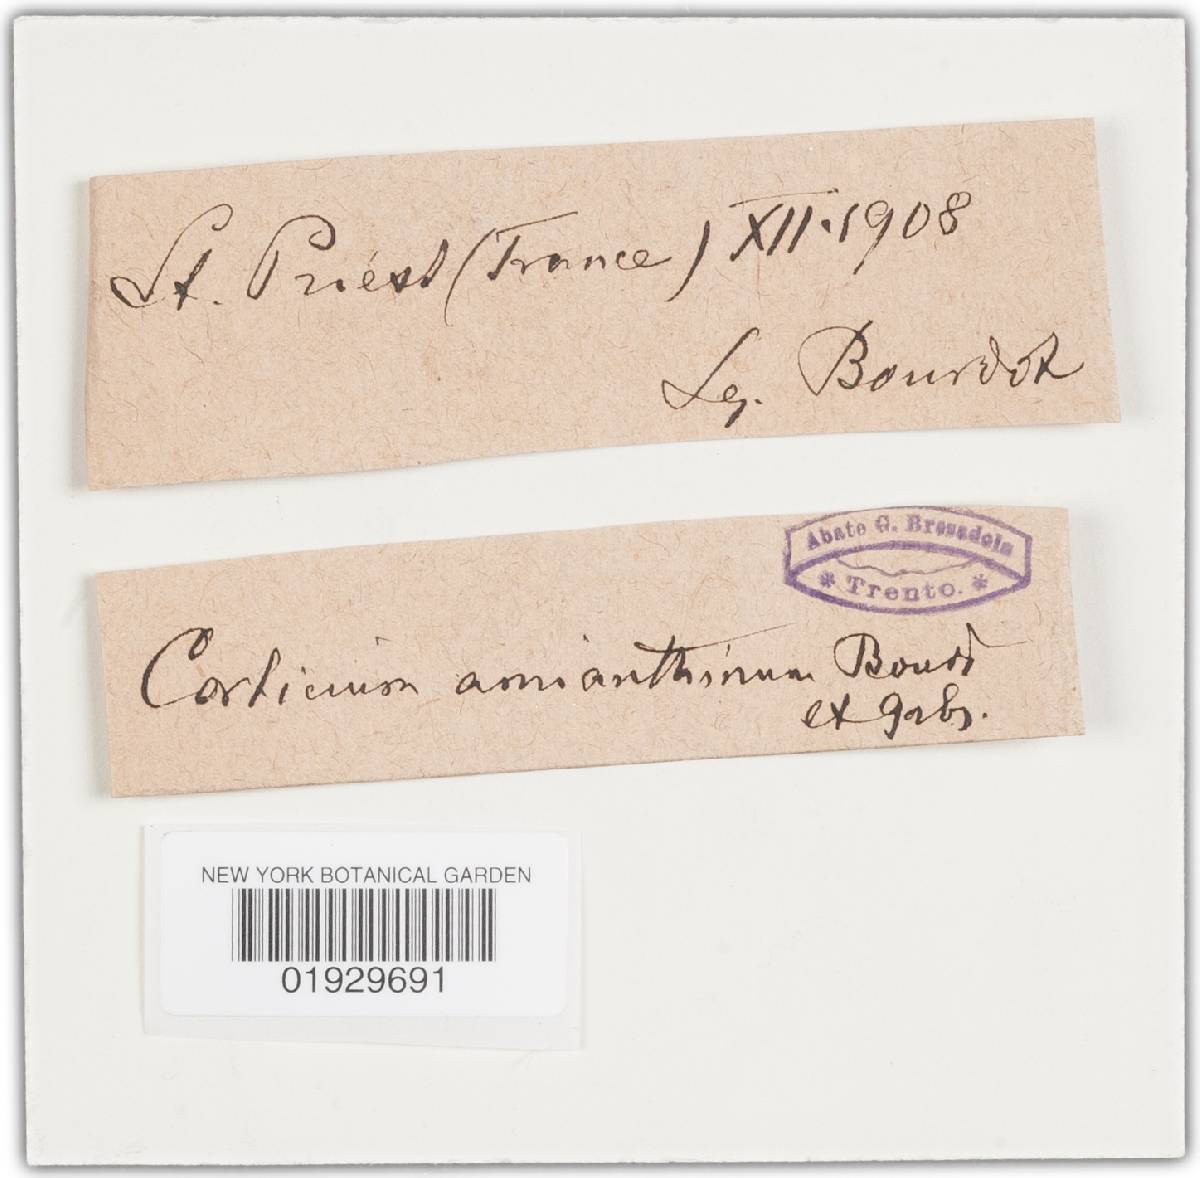 St. Priest (France) XII.1908
Leg. Bourdot
Abate G. Bresadola
* Trento. *
Corticium amianthinum Bourd
et Galz.
NEW YORK BOTANICAL GARDEN
01929691